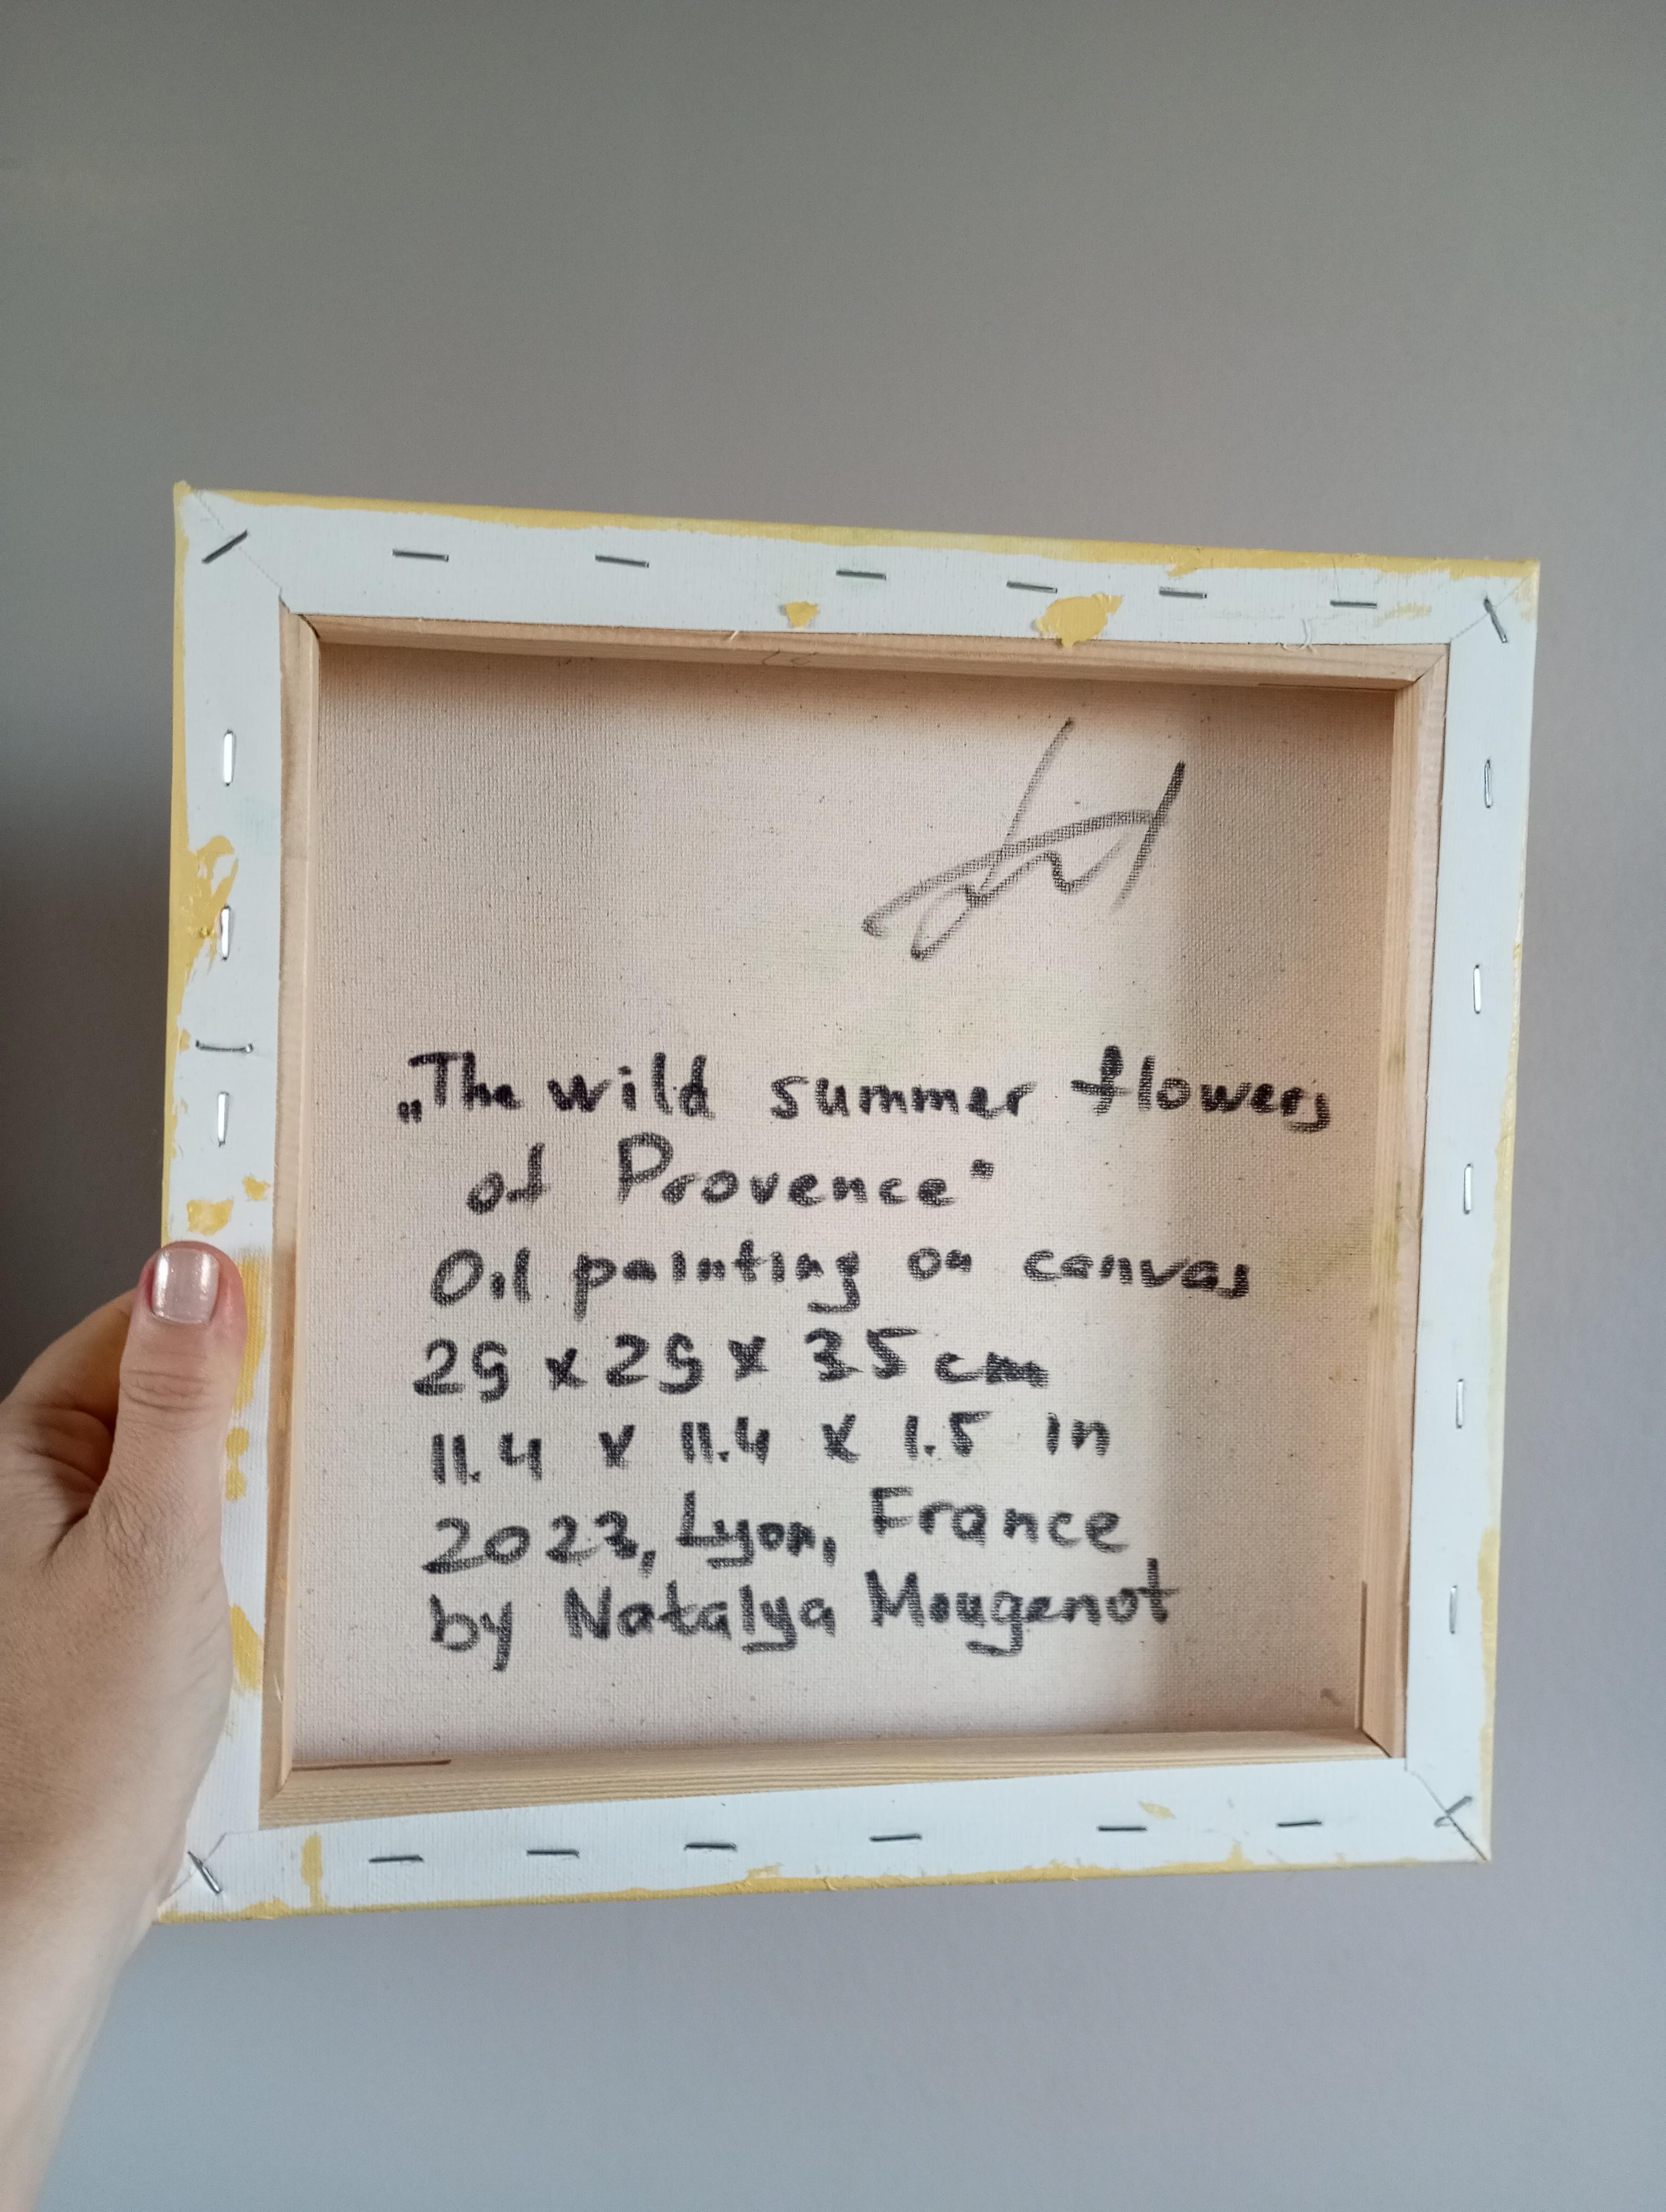 „The wild summer flowers
of Provence"
Oil painting on canvas
25 x 25 x 35 cm
11.4 x 11.4 x 1.5 in
2023, Lyon, France
by Natalya Mougenot